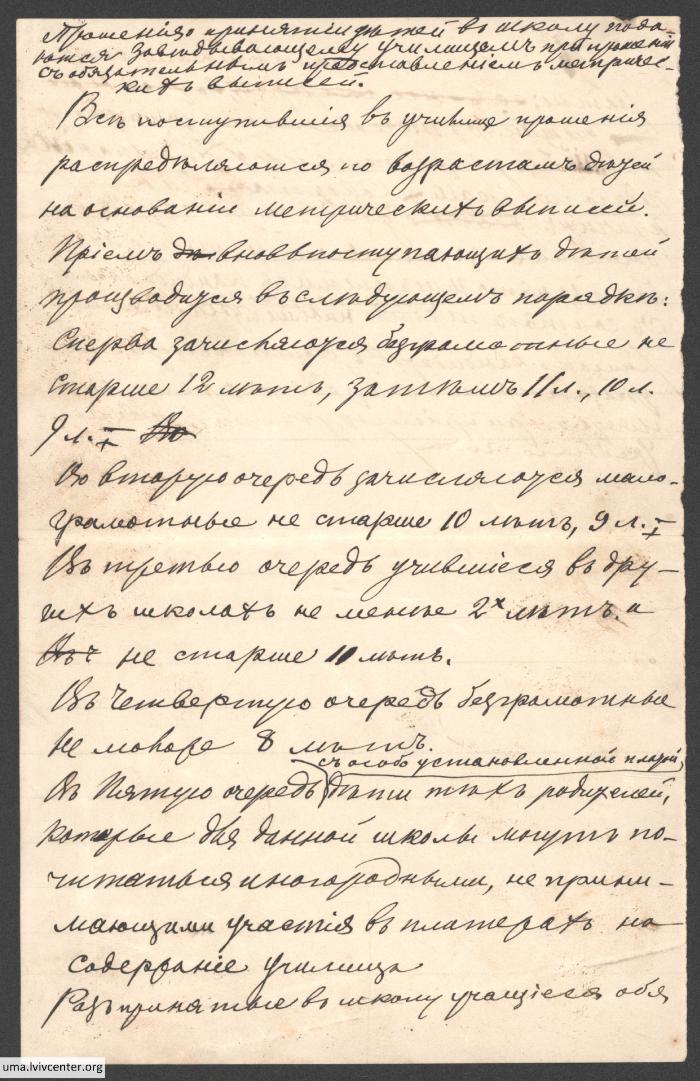 Прошенія о принятіи дѣтей въ школу пода-
ются Завѣдывающему Училищемъ при прошеніи
съ обязательнымъ представленіемъ метричес-
кихъ выписей.
Всѣ поступившія въ училище прошенія
распредѣляются по возрастамъ дѣтей
на основаніи метрическихъ выписей.
Пріемъ вновь поступающихъ дѣтей
производится въ слѣдующемъ порядкѣ:
Сперва зачисляются безграмотные не
старше 12 лѣтъ, затѣмъ 11 л., 10 л.
9 л.
Во вторую очередь зачисляются мало-
грамотные не старше 10 лѣтъ, 9 л.
Въ третью очередь учившіеся въ дру-
гихъ школахъ не менѣе 2х лѣтъ и
не старше 11 лѣтъ.
Въ четвертую очередь безграмотные
не моложе 8 лѣтъ.
съ особо установленной платой
Въ Пятую очередь дѣти тѣхъ родителей,
которые для данной школы могутъ по-
читаться иногородными, не прини-
мающими участія въ платежахъ на
содержаніе училища
Разъ принятые въ школу учащіеся обя
uma.lvivcenter.org